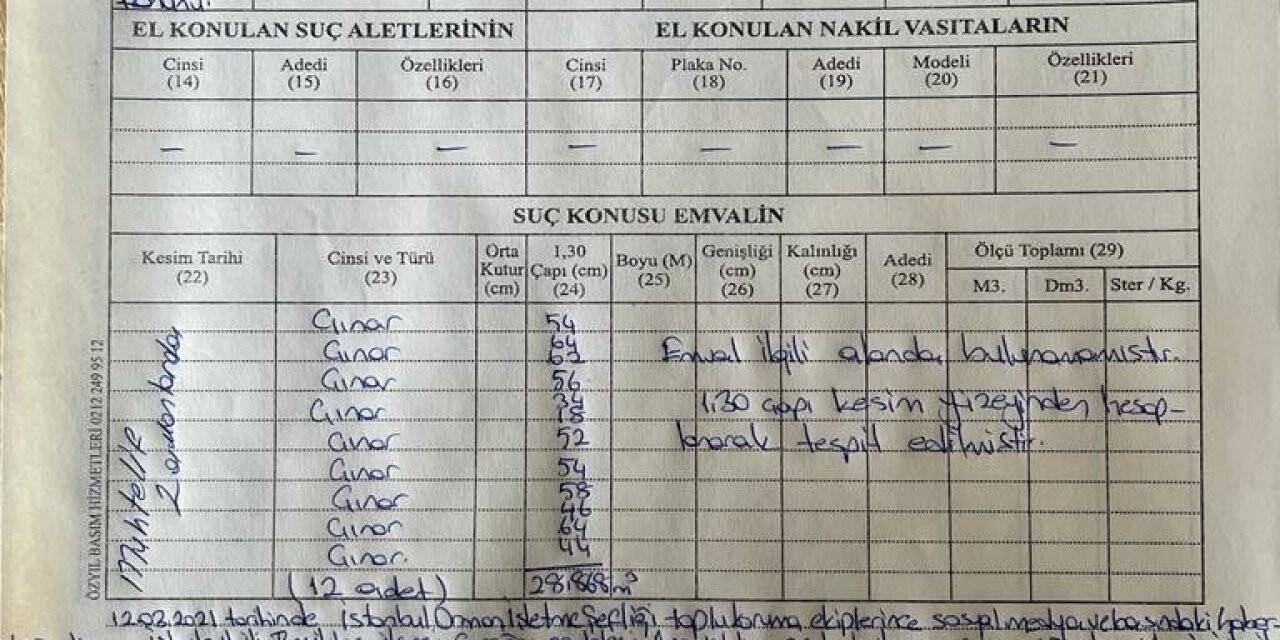 EL KONULAN SUÇ ALETLERİNİN EL KONULAN NAKİL VASITALARIN
Cinsi (14) Adedi (15) Özellikleri (16) Cinsi (17) Plaka No. (18) Adedi (19) Modeli (20) Özellikleri (21)
— — — — — — — —
SUÇ KONUSU EMVALİN
Kesim Tarihi (22) Cinsi ve Türü (23) Orta Kutur (cm) 1,30 Çapı (cm) (24) Boyu (M) (25) Genişliği (cm) (26) Kalınlığı (cm) (27) Adedi (28) Ölçü Toplamı (29)
M3. Dm3. Ster / Kg.
Muhtelif zamanlarda
Çınar 54
Çınar 64
63
Emval ilgili alanda bulunamamıştır.
Çınar 56
Çınar 34
18
1,30 çapı kesim yüzeyinden hesap-
Çınar 52
lanarak tespit edilmiştir.
Çınar 54
Çınar 58
46
Çınar 64
Çınar. 44
(12 adet) 28,868 m³
ÖZYIL BASIM HİZMETLERİ 0212 249 95 12
12.02.2021 tarihinde İstanbul Orman İşletme Şefliği toplu koruma ekiplerince sosyal medya ve basındaki